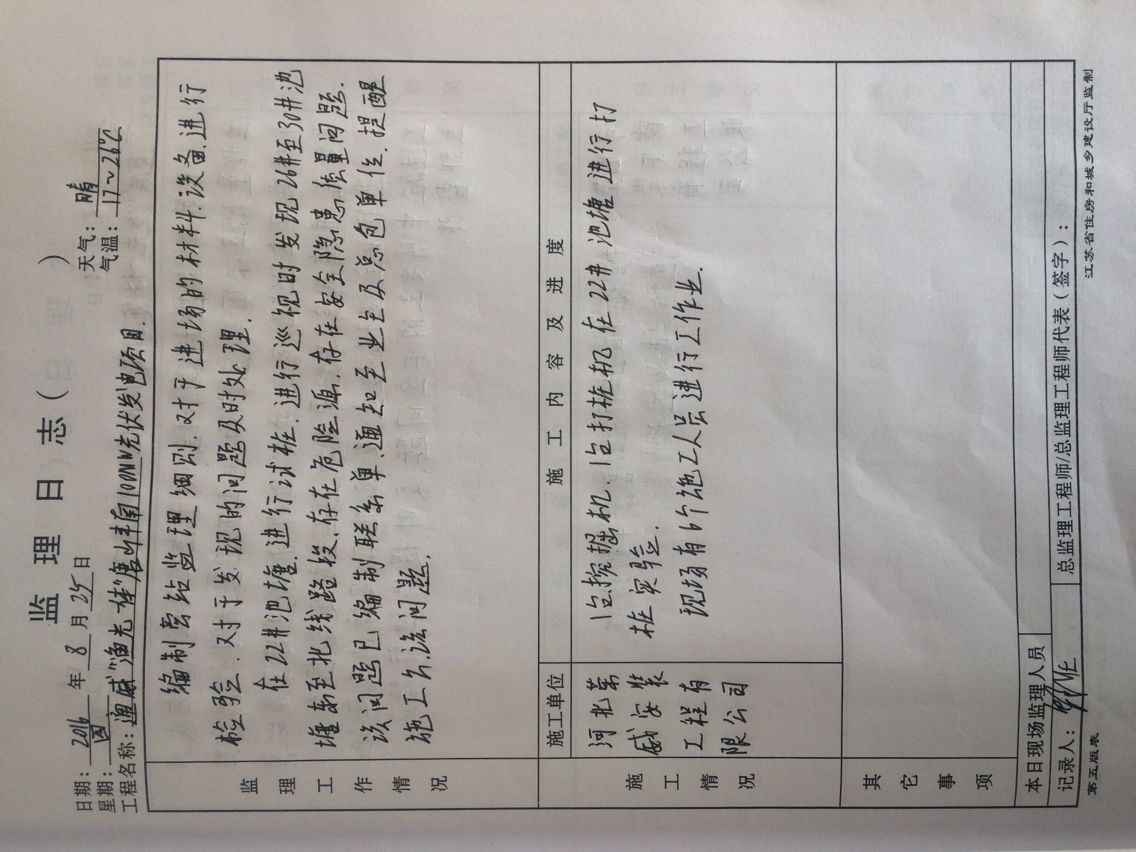 监 理 日 志（ ）
日期：2016 年 8 月 25 日
天气：晴
星期：四
气温：17～26℃
工程名称：通威“渔光一体”唐山丰南100MW光伏发电项目.
监理工作情况
编制旁站监理细则.对于进场的材料.设备.进行
检验.对于发现的问题及时处理.
在22#池塘.进行试桩.进行巡视时发现26#至30#池
塘东至北线路段.存在危险源.存在安全隐患质量问题.
该问题已编制联系单.通知至业主及总包单位.提醒
施工公.该问题.
施工单位
施 工 内 容 及 进 度
施工情况
河北
威安装
工程有
限公司
1台挖掘机.1台打桩机在22#池塘进行打
桩实验.
现场有6个施工人员进行工作业.
其它事项
本日现场监理人员
记录人：
总监理工程师/总监理工程师代表（签字）：
第五版表
江苏省住房和城乡建设厅监制